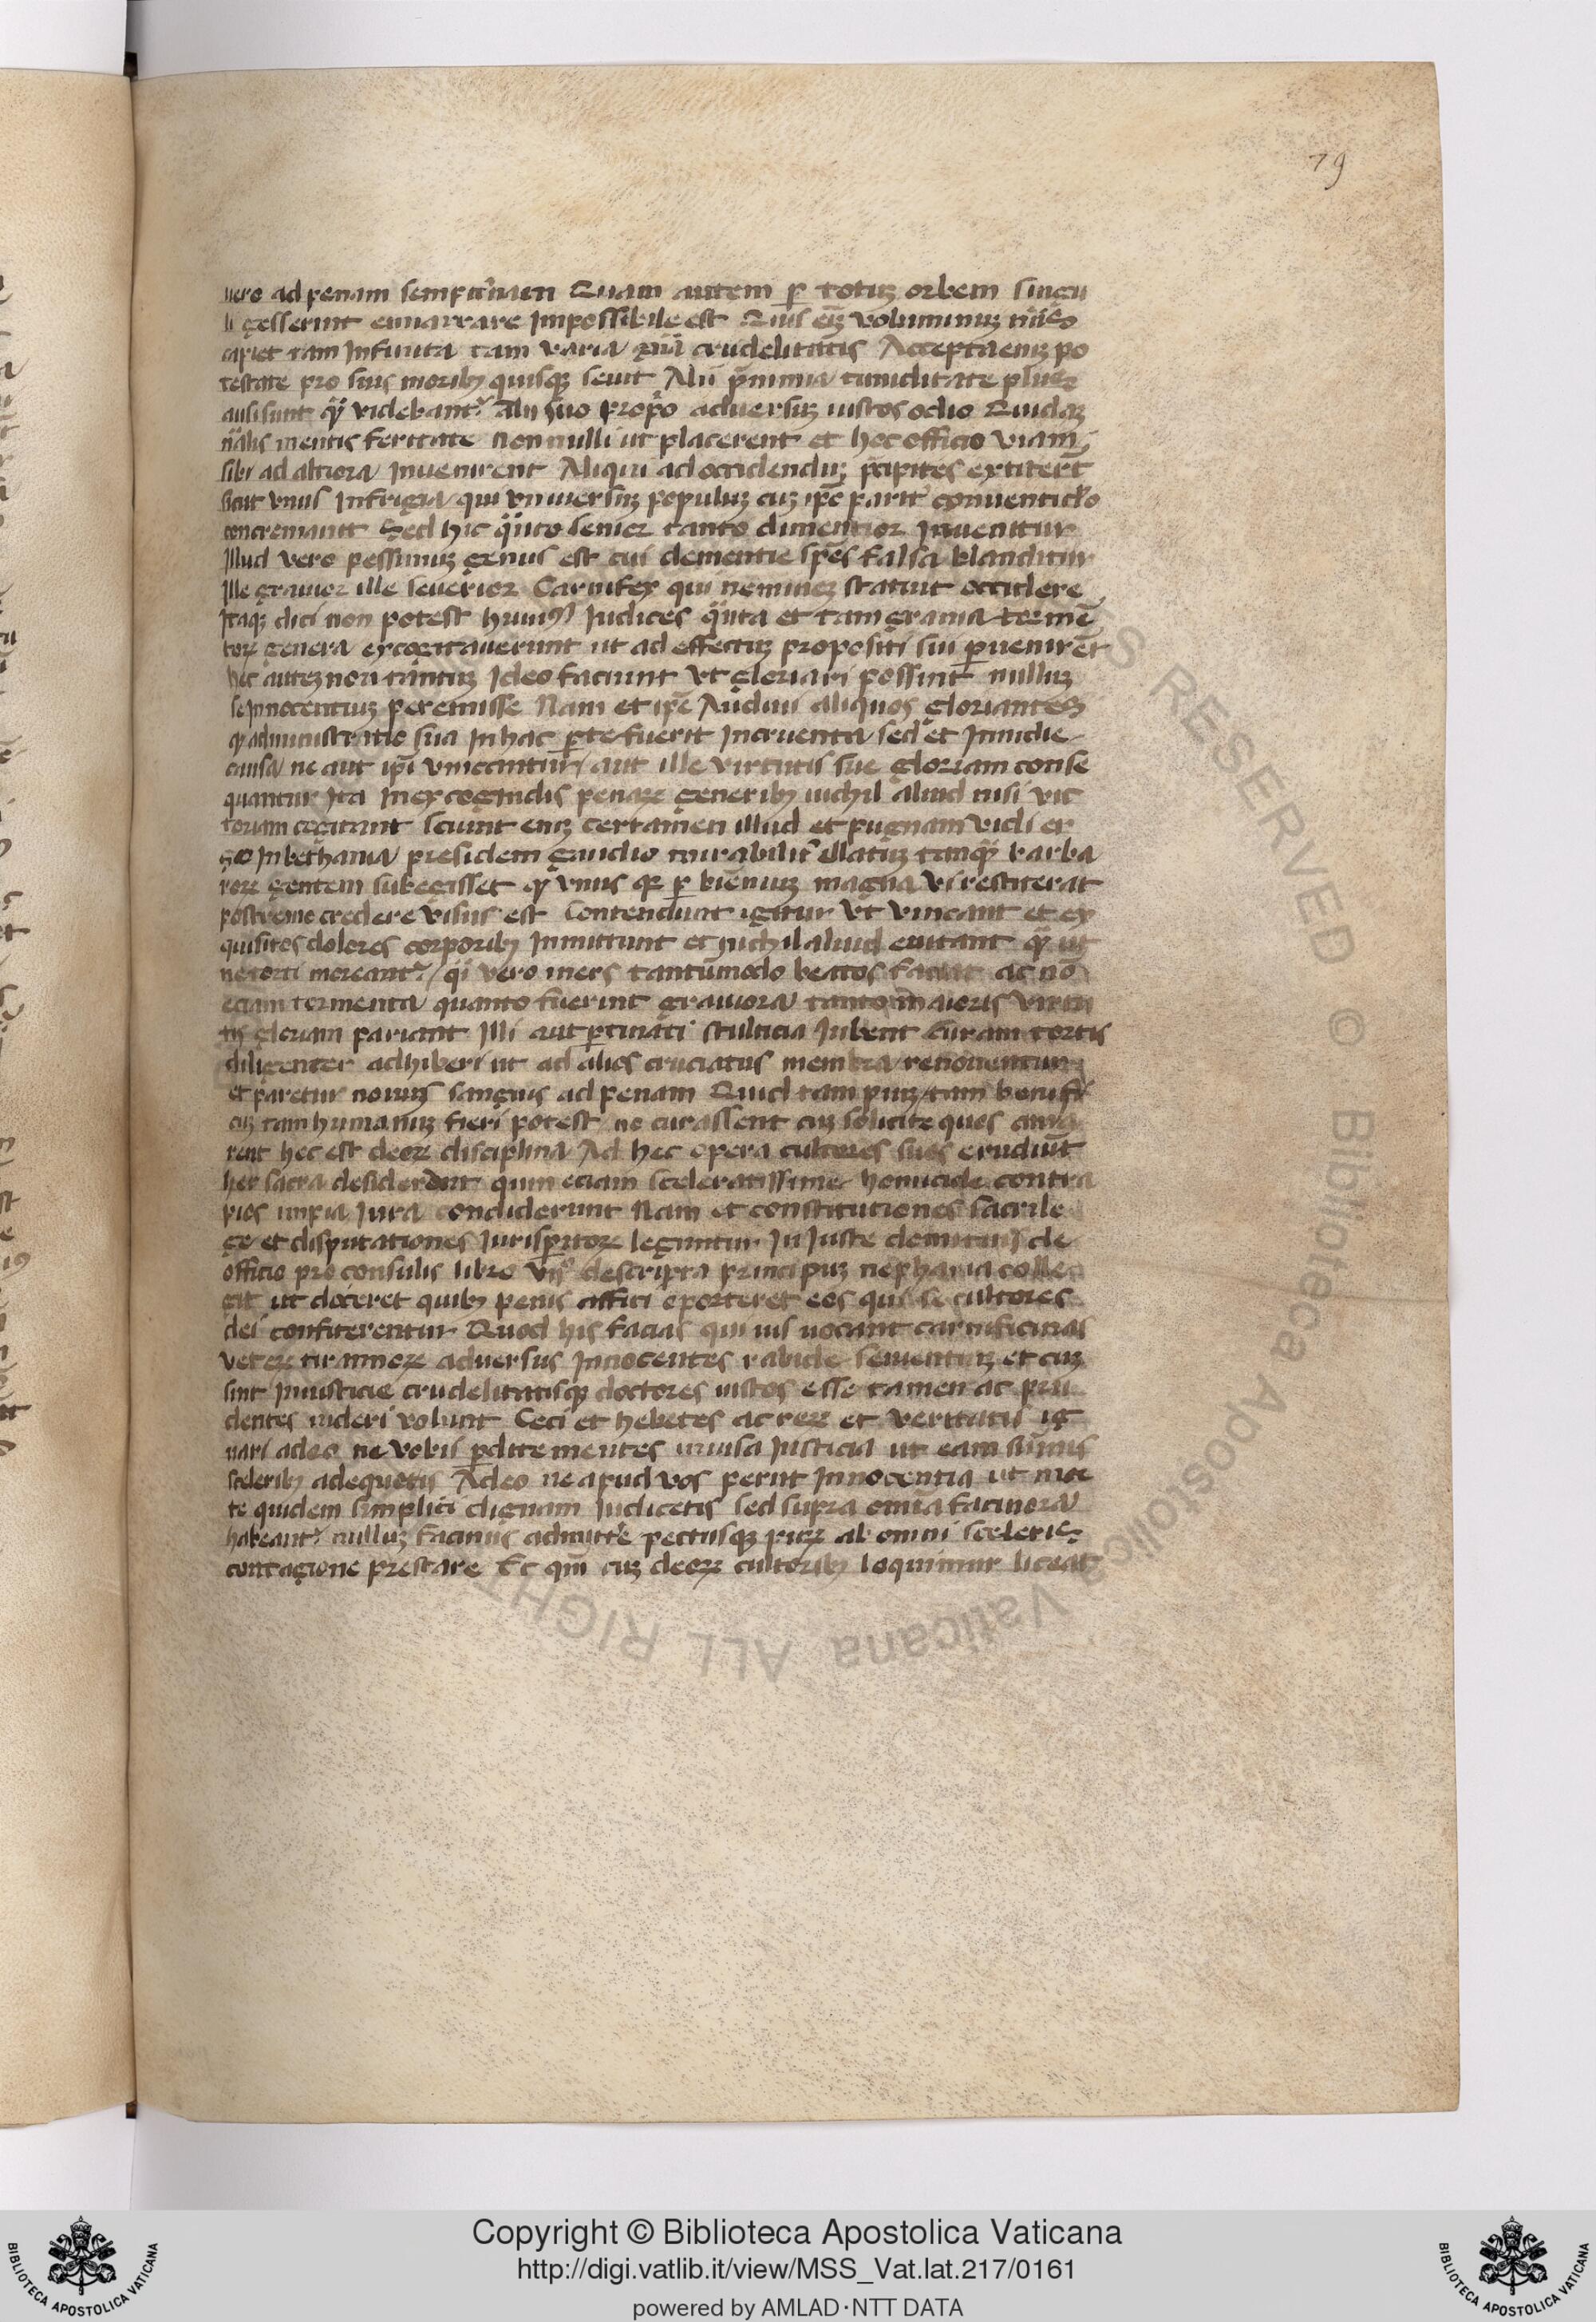 79
vero ad penam sempiternam Quam autem ꝑ totuꝫ orbem singu
li gesserint ennarrare Impossibile est Quis eiꝫ voluminuꝫ nũs
capiet tam Infinita tam varia gña crudelitatis Accepta eniꝫ po
testate pro suis moribꝫ quisqꝫ seuit Alii p̃ nimia timiditate plus
ausi sunt qꝫ videbantʳ Alii suo propo adversuꝫ iustos odio Quidaꝫ
nãlis mentis feritate Non nulli ut placerent et hoc officio viam
sibi ad altiora Invenirent Aliqui ad occidenduꝫ p̃cipites extiterũt
sicut vnus Infrigia qui vniversuꝫ populuꝫ cuꝫ ipõ parit̃ conventiclo
concremauit Sed hic q̃nto sevior tanto dimentior Invenitur
Illud vero pessimuꝫ genus est cui clementie spẽs falsa blanditur
Ille gravior ille severior Carnifex qui nemineꝫ statuit occidere
Itaqꝫ dici non potest huiusꝰ Iudices q̃nta et tam gravia tormẽ
toꝝ genera excogitaverunt ut ad effectuꝫ propositi sui ꝑvenirẽt
hec auteꝫ non tantuꝫ Ideo faciunt vt gloriari possint nulluꝫ
se Innocentiuꝫ peremisse Nam et ipẽ Audiui aliquos gloriantes
qꝫ administratio sua In hac ꝑte fuerit Incruenta sed et Invidie
causa ne aut ipi vincantur / aut ille virtutis sue gloriam conse
quantur Ita In excogindis penaꝝ generibꝫ nichil aliud nisi vic
toriam cogitant sciunt eniꝫ certamen illud et pugnam vidi er
go In bethania presidem gaudio mirabilit̃ ellatuꝫ tanqꝫ barba
roꝝ gentem subegisset qꝫ vnus qꝫ ꝑ bienniuꝫ magna vi restiterat
postremo credere visus est Contendunt igitur vt vincant et ex
quisitos dolores corporibꝫ Inmittunt et nichil aliud evitant qꝫ ut
ne torti moreantʳ / qi vero mors tantum̃odo beatos faciat ac nõ
eciam tormenta quanto fuerint graviora tanto maioris virtu
tis gloriam pariant Illi aut ꝑtinati stulticia Iubent Curam tortis
diligenter adhiberi ut ad alios cruciatus membra renoventur
et paretur novus sanguis ad penam Quid tam piuꝫ / tam benifi
cuꝫ tam humanuꝫ fieri potest no curassent cuꝫ solicite quos ama
rent hec est deoꝝ disciplina Ad hec opera cultores suos erudiũt
hec sacra desiderant quin eciam sceleratissime homicide contra
pios impia Iura condiderunt Nam et constitutiones sacrile
ge et disputationes Iurisꝑitoꝝ leguntur In Iuste domitius de
officio pro consulis libro vi⁹ descripta principuꝫ nepharia colle
git ut doceret quibꝫ penis affici oporteret eos qui se cultores
dei confiterentur Quod his facias qui ius vocant carnificinas
veteꝝ tirannoꝝ adversus Innocentes rabide sevientiuꝫ et cuꝫ
sint Iniusticie crudelitatisqꝫ doctores iustos esse tamen ac pru
dentes videri volunt Ceci et hebetes ac reꝝ et veritatis ig
nari adeo ne vobis ꝑdite mentes invisa Iusticia ut eam sum̃is
sceleribꝫ adequetis Adeo ne apud vos perit Innocentia ut mor
te quidem simplici dignam Iudicetis sed supra om̃ia facinora
habeantʳ nulluꝫ facinus admittẽ pectusqꝫ puꝝ ab omni sceleris
contagione prestare Ec qm̃ cuꝫ deoꝝ cultoribꝫ loquimur liceat
RES RESERVED © Biblioteca Apostolica Vaticana ALL RIGHT
Copyright © Biblioteca Apostolica Vaticana
http://digi.vatlib.it/view/MSS_Vat.lat.217/0161
powered by AMLAD·NTT DATA
BIBLIOTECA APOSTOLICA VATICANA
BIBLIOTECA APOSTOLICA VATICANA